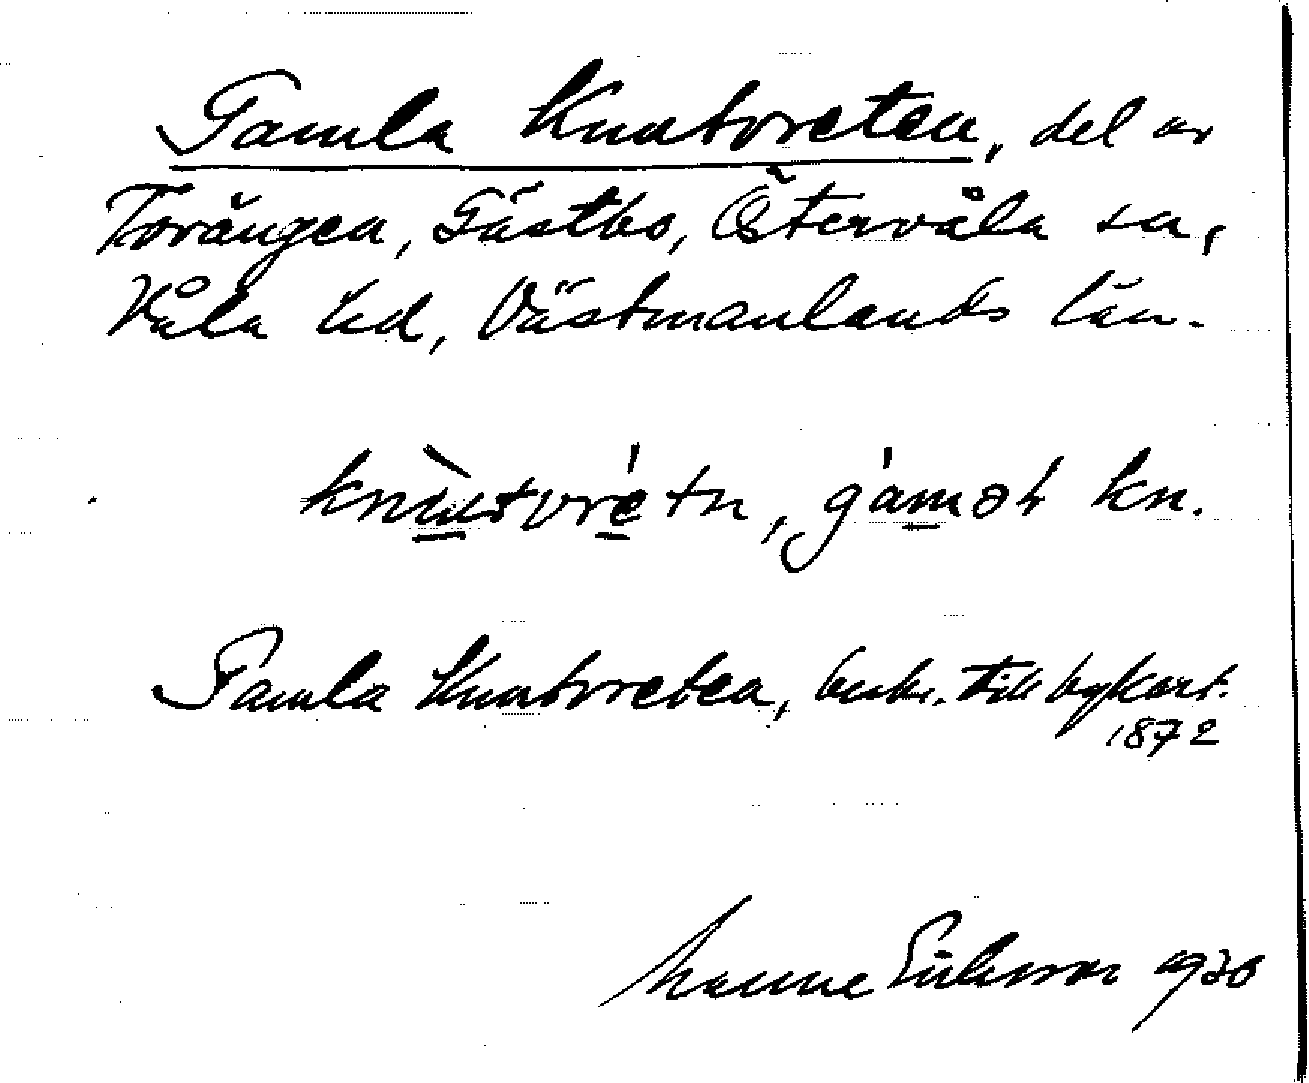 Gamla Knutvreten, del av
Torängen, Gästbo, Östervåla sn,
Våla hd, Västmanlands län.
knùtvrétn, gámot kn.
Gamla Knutvreten, beskr. till bykart.
1872
Manne Eriksson 1930